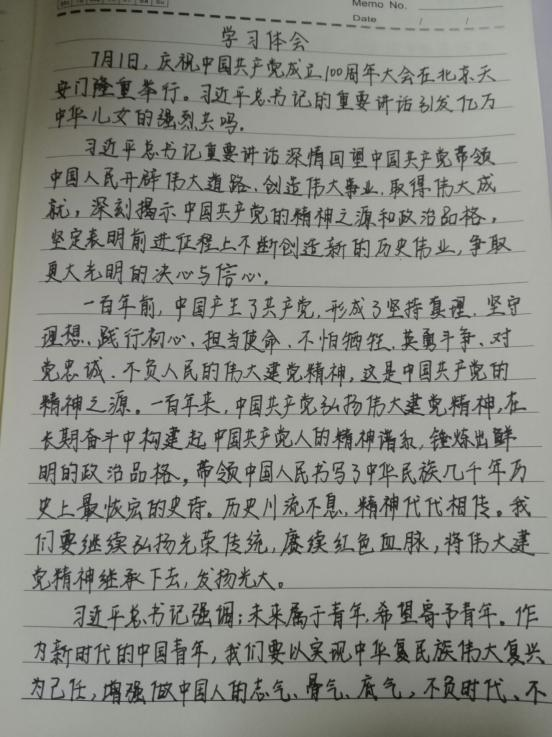 Memo No.
Date / /
学习体会
7月1日,庆祝中国共产党成立100周年大会在北京天
安门隆重举行。习近平总书记的重要讲话引发亿万
中华儿女的强烈共鸣。
习近平总书记重要讲话深情回望中国共产党带领
中国人民开辟伟大道路、创造伟大事业、取得伟大成
就,深刻揭示中国共产党的精神之源和政治品格,
坚定表明前进征程上不断创造新的历史伟业,争取
更大光明的决心与信心。
一百年前,中国产生了共产党,形成了坚持真理、坚守
理想、践行初心、担当使命、不怕牺牲、英勇斗争、对
党忠诚、不负人民的伟大建党精神,这是中国共产党的
精神之源。一百年来,中国共产党弘扬伟大建党精神,在
长期奋斗中构建起中国共产党人的精神谱系,锤炼出鲜
明的政治品格。带领中国人民书写了中华民族几千年历
史上最恢宏的史诗。历史川流不息,精神代代相传。我
们要继续弘扬光荣传统,赓续红色血脉,将伟大建
党精神继承下去,发扬光大。
习近平总书记强调:未来属于青年,希望寄予青年。作
为新时代的中国青年,我们要以实现中华复民族伟大复兴
为己任,增强做中国人的志气、骨气、底气,不负时代、不